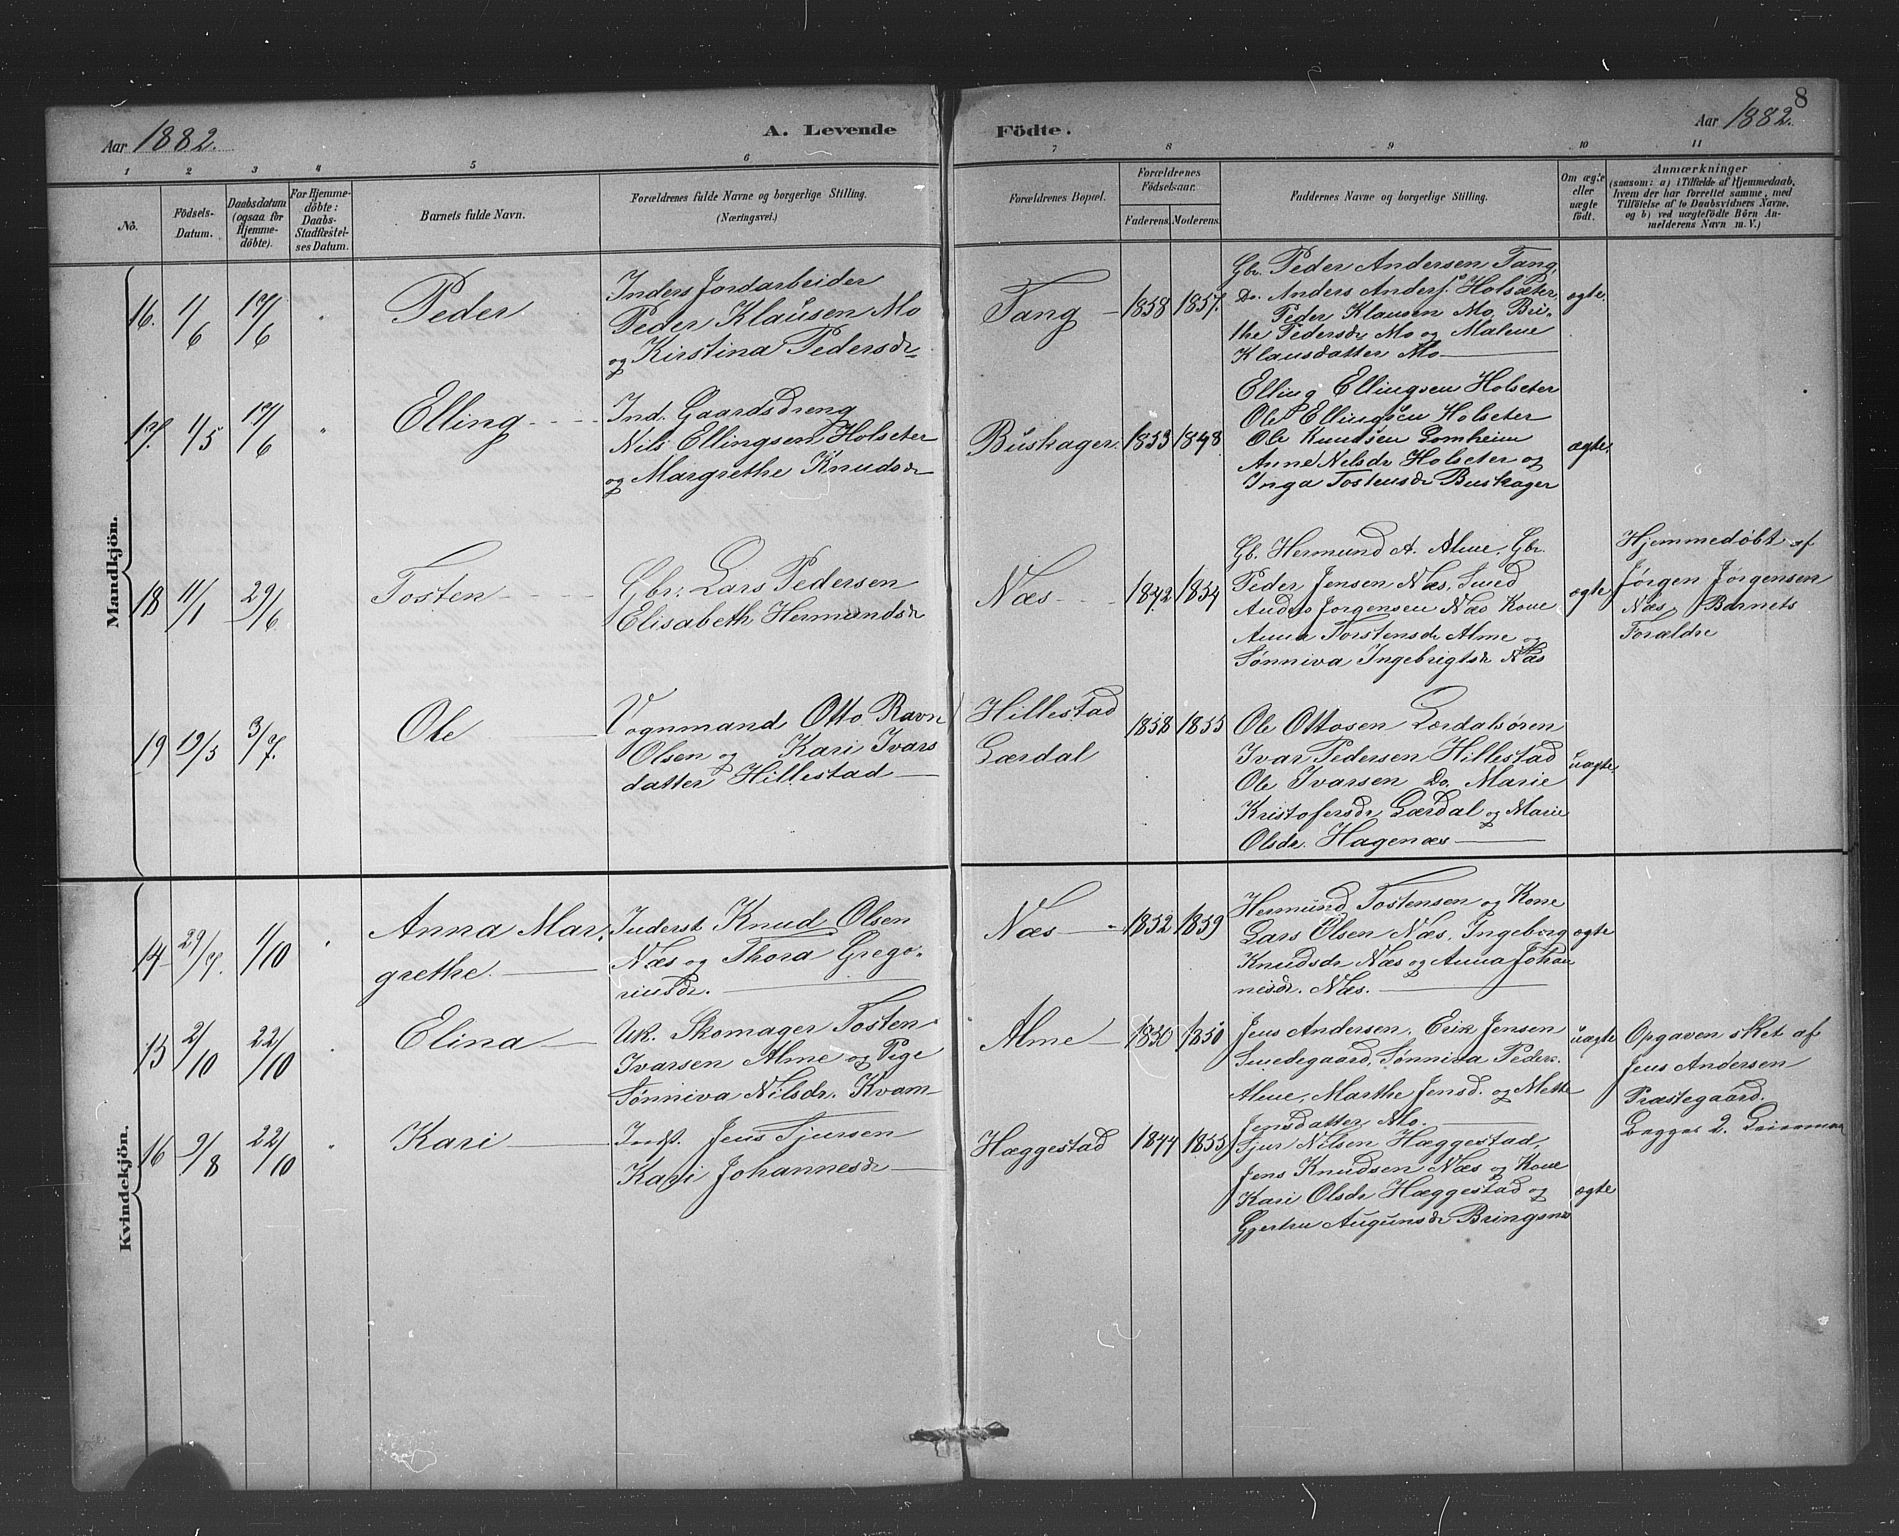 8
Aar 1882.
A. Levende Födte.
Aar 1882.
1 2 3 4 5 6 7 8 9 10 11
No.
Födsels-Datum.
Daabsdatum (ogsaa for Hjemmedöbte).
For Hjemmedöbte: Daabs-Stadfæstelses Datum.
Barnets fulde Navn.
Forældrenes fulde Navne og borgerlige Stilling.
(Næringsvei.)
Forældrenes Bopæl.
Forældrenes Födselsaar.
Faderens. Moderens.
Faddernes Navne og borgerlige Stilling.
Om ægte eller uægte födt.
Anmærkninger
(saasom: a) i Tilfælde af Hjemmedaab, hvem der har forrettet samme, med Tilföielse af to Daabsvidners Navne, og b) ved uægtefödte Börn Anmelderens Navn m. V.)
Mandkjön.
16. 1/6 17/6 " Peder
Inders Jordarbeider
Peder Klausen Mo
og Kirstina Pedersdr
Tang 1858 1857.
Gbr. Peder Andersen Tang,
Do. Anders Anders. Holsæter,
Peder Klausen Mo, Bri-
the Pedersdr Mo og Malene
Klausdatter Mo
ægte.
17. 1/5 17/6 " Elling
Ind. Gaardsdreng
Nils Ellingsen Holseter
og Margrethe Knudsdr
Buskager. 1853 1848
Elling Ellingsen Holseter
Ole Ellingsen Holseter
Ole Knudsen Lomheim
Anne Nilsdr Holseter og
Inga Tostensdr Buskager
ægte.
18 11/1 29/6 Tosten
Gbr. Lars Pedersen
Elisabeth Hermundsdr
Næs 1842 1854
Gb. Hermund A. Alme, Gbr.
Peder Jensen Næs, Smed
Anders Jorgensen Næs Kone
Anna Torstensdr Alme og
Sønniva Ingebrigtsdr Næs
ægte
Hjemmedøbt af
Jørgen Jørgensen
Næs, Barnets
Forældre
19 19/5 3/7. Ole
Vognmand Otto Ravn
Olsen og Kari Ivars
datter Hillestad
Hillestad
Lærdal
1858 1855
Ole Ottosen Lærdalsören
Ivar Pedersen Hillestad
Ole Ivarsen Do. Marie
Kristofersdr Lærdal og Marie
Olsdr. Hagenæs
uægte
Kvindekjön.
14 29/7. 1/10 " Anna Mar-
grethe.
Inderst Knud Olsen
Næs og Thora Grego-
riusdr.
Næs 1852 1859
Hermund Tostensen og Kone
Lars Olsen Næs, Ingeborg
Knudsdr Næs og Anna Johan
nesdr. Næs.
ægte
15 2/10 22/10 Elina
Uk. Skomager Tosten
Ivarsen Alme og Pige
Sønniva Nilsdr. Kvam
Alme 1850 1850
Jens Andersen, Erik Jensen
Smedegaard, Sønniva Peders.
Alme, Marthe Jensd. og Mette
Jensdatter Mo.
uægte
Opgaven sket af
Jens Andersen
Præstegaard.
Begges 2. Leiermaal
16 9/8 22/10 " Kari
Indst. Jens Sjursen
Kari Johannesdr
Hæggestad 1844 1855
Sjur Nilsen Hæggestad,
Jens Knudsen Næs og Kone
Kari Olsdr Hæggestad og
Gjertru Augunsdr Bringsnæs
ægte